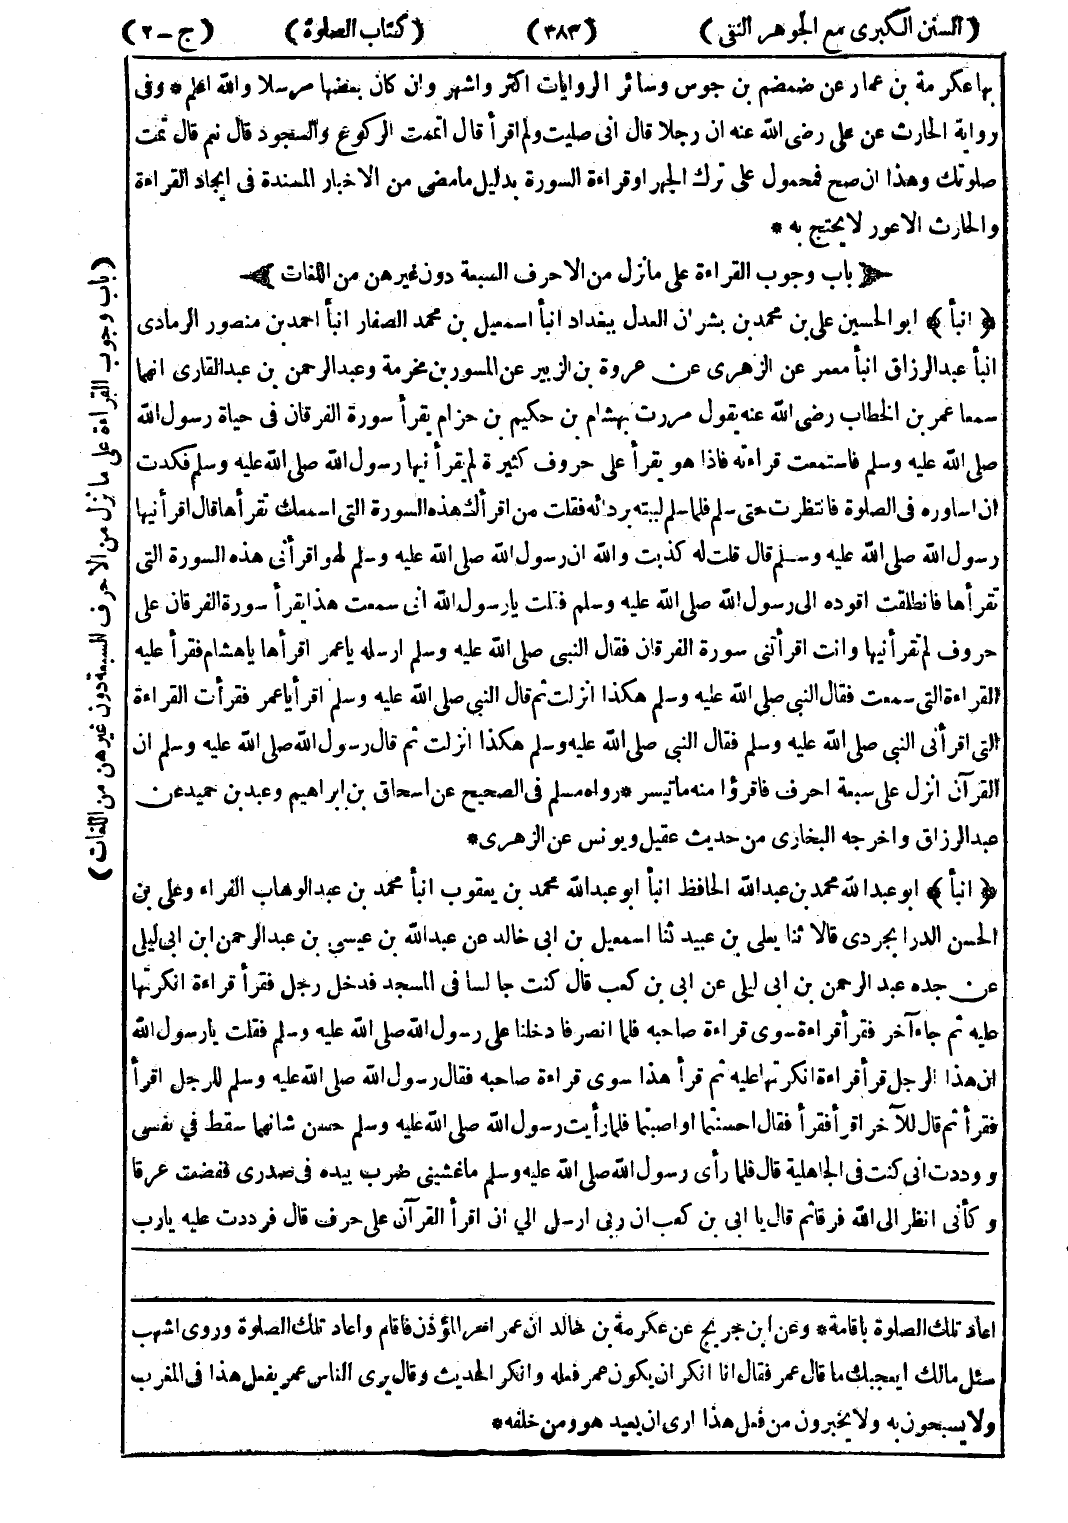 (السنن الكبرى مع الجوهر النقى) (٣٨٣) (كتاب الصلوة) (ج ـ ٢)
بها عكرمة بن عمار عن ضمضم بن جوس وسائر الروايات اكثر واشهر وان كان بعضها مرسلا والله اعلم * وفى
رواية الحارث عن على رضى الله عنه ان رجلا قال انى صليت ولم اقرأ قال اتممت الركوع والسجود قال نعم قال تمت
صلوتك وهذا ان صح فمحمول على ترك الجهر او قراءة السورة بدليل ما مضى من الاخبار المسندة فى ايجاد القراءة
والحارث الاعور لا يحتج به *
﴿ باب وجوب القراءة على ما نزل من الاحرف السبعة دون غيرهن من اللغات ﴾
﴿ انبأ ﴾ ابو الحسين على بن محمد بن بشران العدل ببغداد انبأ اسمعيل بن محمد الصفار انبأ احمد بن منصور الرمادى
انبأ عبد الرزاق انبأ معمر عن الزهرى عن عروة بن الزبير عن المسور بن مخرمة وعبد الرحمن بن عبد القارى انهما
سمعا عمر بن الخطاب رضى الله عنه يقول مررت بهشام بن حكيم بن حزام يقرأ سورة الفرقان فى حياة رسول الله
صلى الله عليه وسلم فاستمعت قراءته فاذا هو يقرأ على حروف كثيرة لم يقرأ نيها رسول الله صلى الله عليه وسلم فكدت
ان اساوره فى الصلوة فانتظرت حتى سلم فلما سلم لببته بردائه فقلت من اقرأك هذه السورة التى اسمعك تقرأها قال اقرأنيها
رسول الله صلى الله عليه وسلم قال قلت له كذبت والله ان رسول الله صلى الله عليه وسلم لهو اقرأنى هذه السورة التى
تقرأها فانطلقت اقوده الى رسول الله صلى الله عليه وسلم فقلت يا رسول الله انى سمعت هذا يقرأ سورة الفرقان على
حروف لم تقرأنيها وانت اقرأتنى سورة الفرقان فقال النبى صلى الله عليه وسلم ارسله يا عمر اقرأها يا هشام فقرأ عليه
القراءة التى سمعت فقال النبى صلى الله عليه وسلم هكذا انزلت ثم قال النبى صلى الله عليه وسلم اقرأ يا عمر فقرأت القراءة
التى اقرأنى النبى صلى الله عليه وسلم فقال النبى صلى الله عليه وسلم هكذا انزلت ثم قال رسول الله صلى الله عليه وسلم ان
القرآن انزل على سبعة احرف فاقرؤا منه ما تيسر * رواه مسلم فى الصحيح عن اسحاق بن ابراهيم وعبد بن حميد عن
عبد الرزاق واخرجه البخارى من حديث عقيل ويونس عن الزهرى *
﴿ انبأ ﴾ ابو عبد الله محمد بن عبد الله الحافظ انبأ ابو عبد الله محمد بن يعقوب انبأ محمد بن عبد الوهاب الفراء وعلى بن
الحسن الدرابجردى قالا ثنا يعلى بن عبيد ثنا اسمعيل بن ابى خالد عن عبد الله بن عيسى بن عبد الرحمن ابن ابى ليلى
عن جده عبد الرحمن بن ابى ليلى عن ابى بن كعب قال كنت جالسا فى المسجد فدخل رجل فقرأ قراءة انكرتها
عليه ثم جاء آخر فقرأ قراءة سوى قراءة صاحبه فلما انصرفا دخلنا على رسول الله صلى الله عليه وسلم فقلت يا رسول الله
ان هذا الرجل قرأ قراءة انكرتها عليه ثم قرأ هذا سوى قراءة صاحبه فقال رسول الله صلى الله عليه وسلم للرجل اقرأ
فقرأ ثم قال للآخر اقرأ فقرأ فقال احسنتما او اصبتما فلما رأيت رسول الله صلى الله عليه وسلم حسن شانهما سقط في نفسى
ووددت انى كنت فى الجاهلية قال فلما رأى رسول الله صلى الله عليه وسلم ما غشينى ضرب بيده فى صدرى ففضت عرقا
وكأنى انظر الى الله فرقا ثم قال يا ابى بن كعب ان ربى ارسل الي ان اقرأ القرآن على حرف قال فرددت عليه يا رب
اعاد تلك الصلوة باقامة * وعن ابن جريج عن عكرمة بن خالد ان عمر امر المؤذن فاقام واعاد تلك الصلوة وروى اشهب
سئل مالك ايعجبك ما قال عمر فقال انا انكر ان يكون عمر فعله وانكر الحديث وقال يرى الناس عمر يفعل هذا فى المغرب
ولا يسبحون به ولا يخبرون من فعل هذا ارى ان يعيد هو ومن خلفه *
(باب وجوب القراءة على ما نزل من الاحرف السبعة دون غيرهن من اللغات)